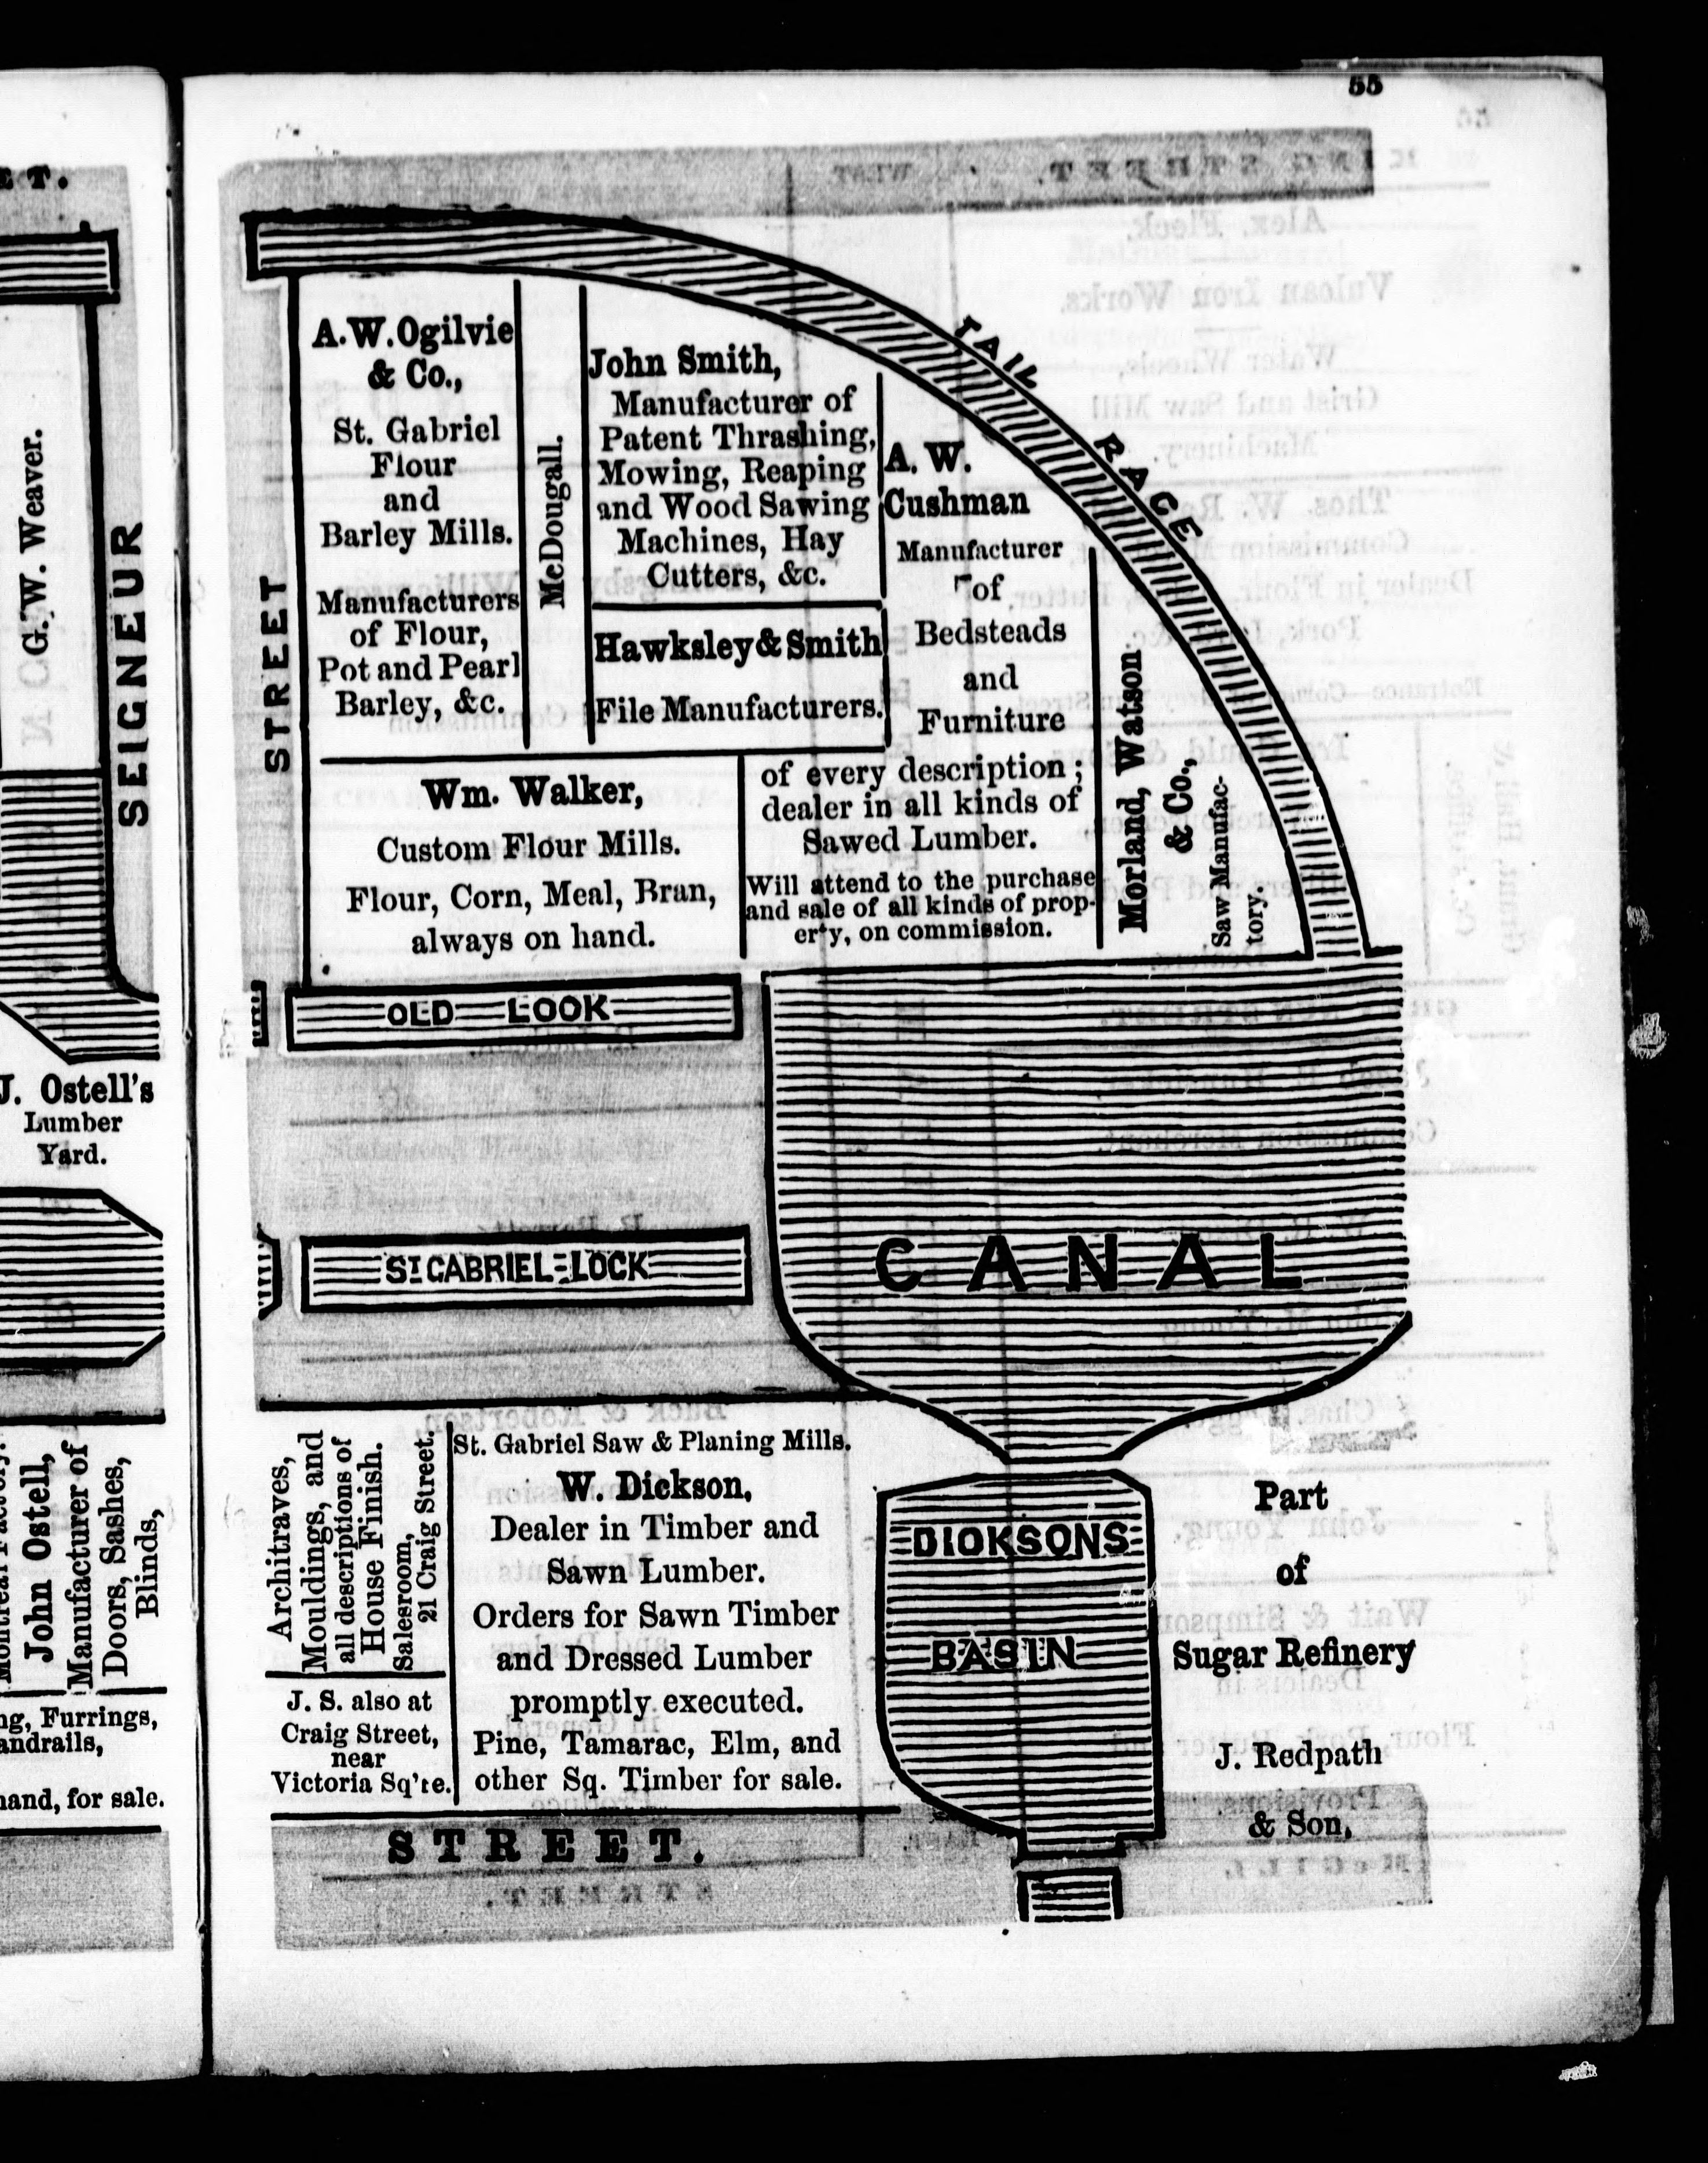 55
ET.
G. W. Weaver.
SEIGNEUR
STREET
A. W. Ogilvie
& Co.,
St. Gabriel
Flour
and
Barley Mills.
Manufacturers
of Flour,
Pot and Pearl
Barley, &c.
McDougall.
John Smith,
Manufacturer of
Patent Thrashing,
Mowing, Reaping
and Wood Sawing
Machines, Hay
Cutters, &c.
Hawksley & Smith
File Manufacturers.
TAIL RACE
A. W.
Cushman
Manufacturer
of
Bedsteads
and
Furniture
of every description ;
dealer in all kinds of
Sawed Lumber.
Will attend to the purchase
and sale of all kinds of prop-
erty, on commission.
Morland, Watson
& Co.,
Saw Manufac-
tory.
Wm. Walker,
Custom Flour Mills.
Flour, Corn, Meal, Bran,
always on hand.
OLD LOCK
J. Ostell's
Lumber
Yard.
ST GABRIEL LOCK
CANAL
John Ostell,
Manufacturer of
Doors, Sashes,
Blinds,
Architraves,
Mouldings, and
all descriptions of
House Finish.
Salesroom,
21 Craig Street.
J. S. also at
Craig Street,
near
Victoria Sq're.
Furrings,
hand, for sale.
St. Gabriel Saw & Planing Mills.
W. Dickson,
Dealer in Timber and
Sawn Lumber.
Orders for Sawn Timber
and Dressed Lumber
promptly executed.
Pine, Tamarac, Elm, and
other Sq. Timber for sale.
DICKSONS
BASIN
Part
of
Sugar Refinery
J. Redpath
& Son,
STREET.